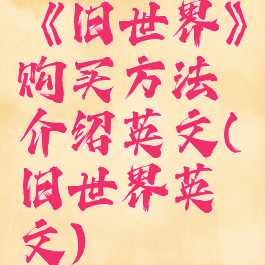 《旧世界》
购买方法
介绍英文(
旧世界英
文)